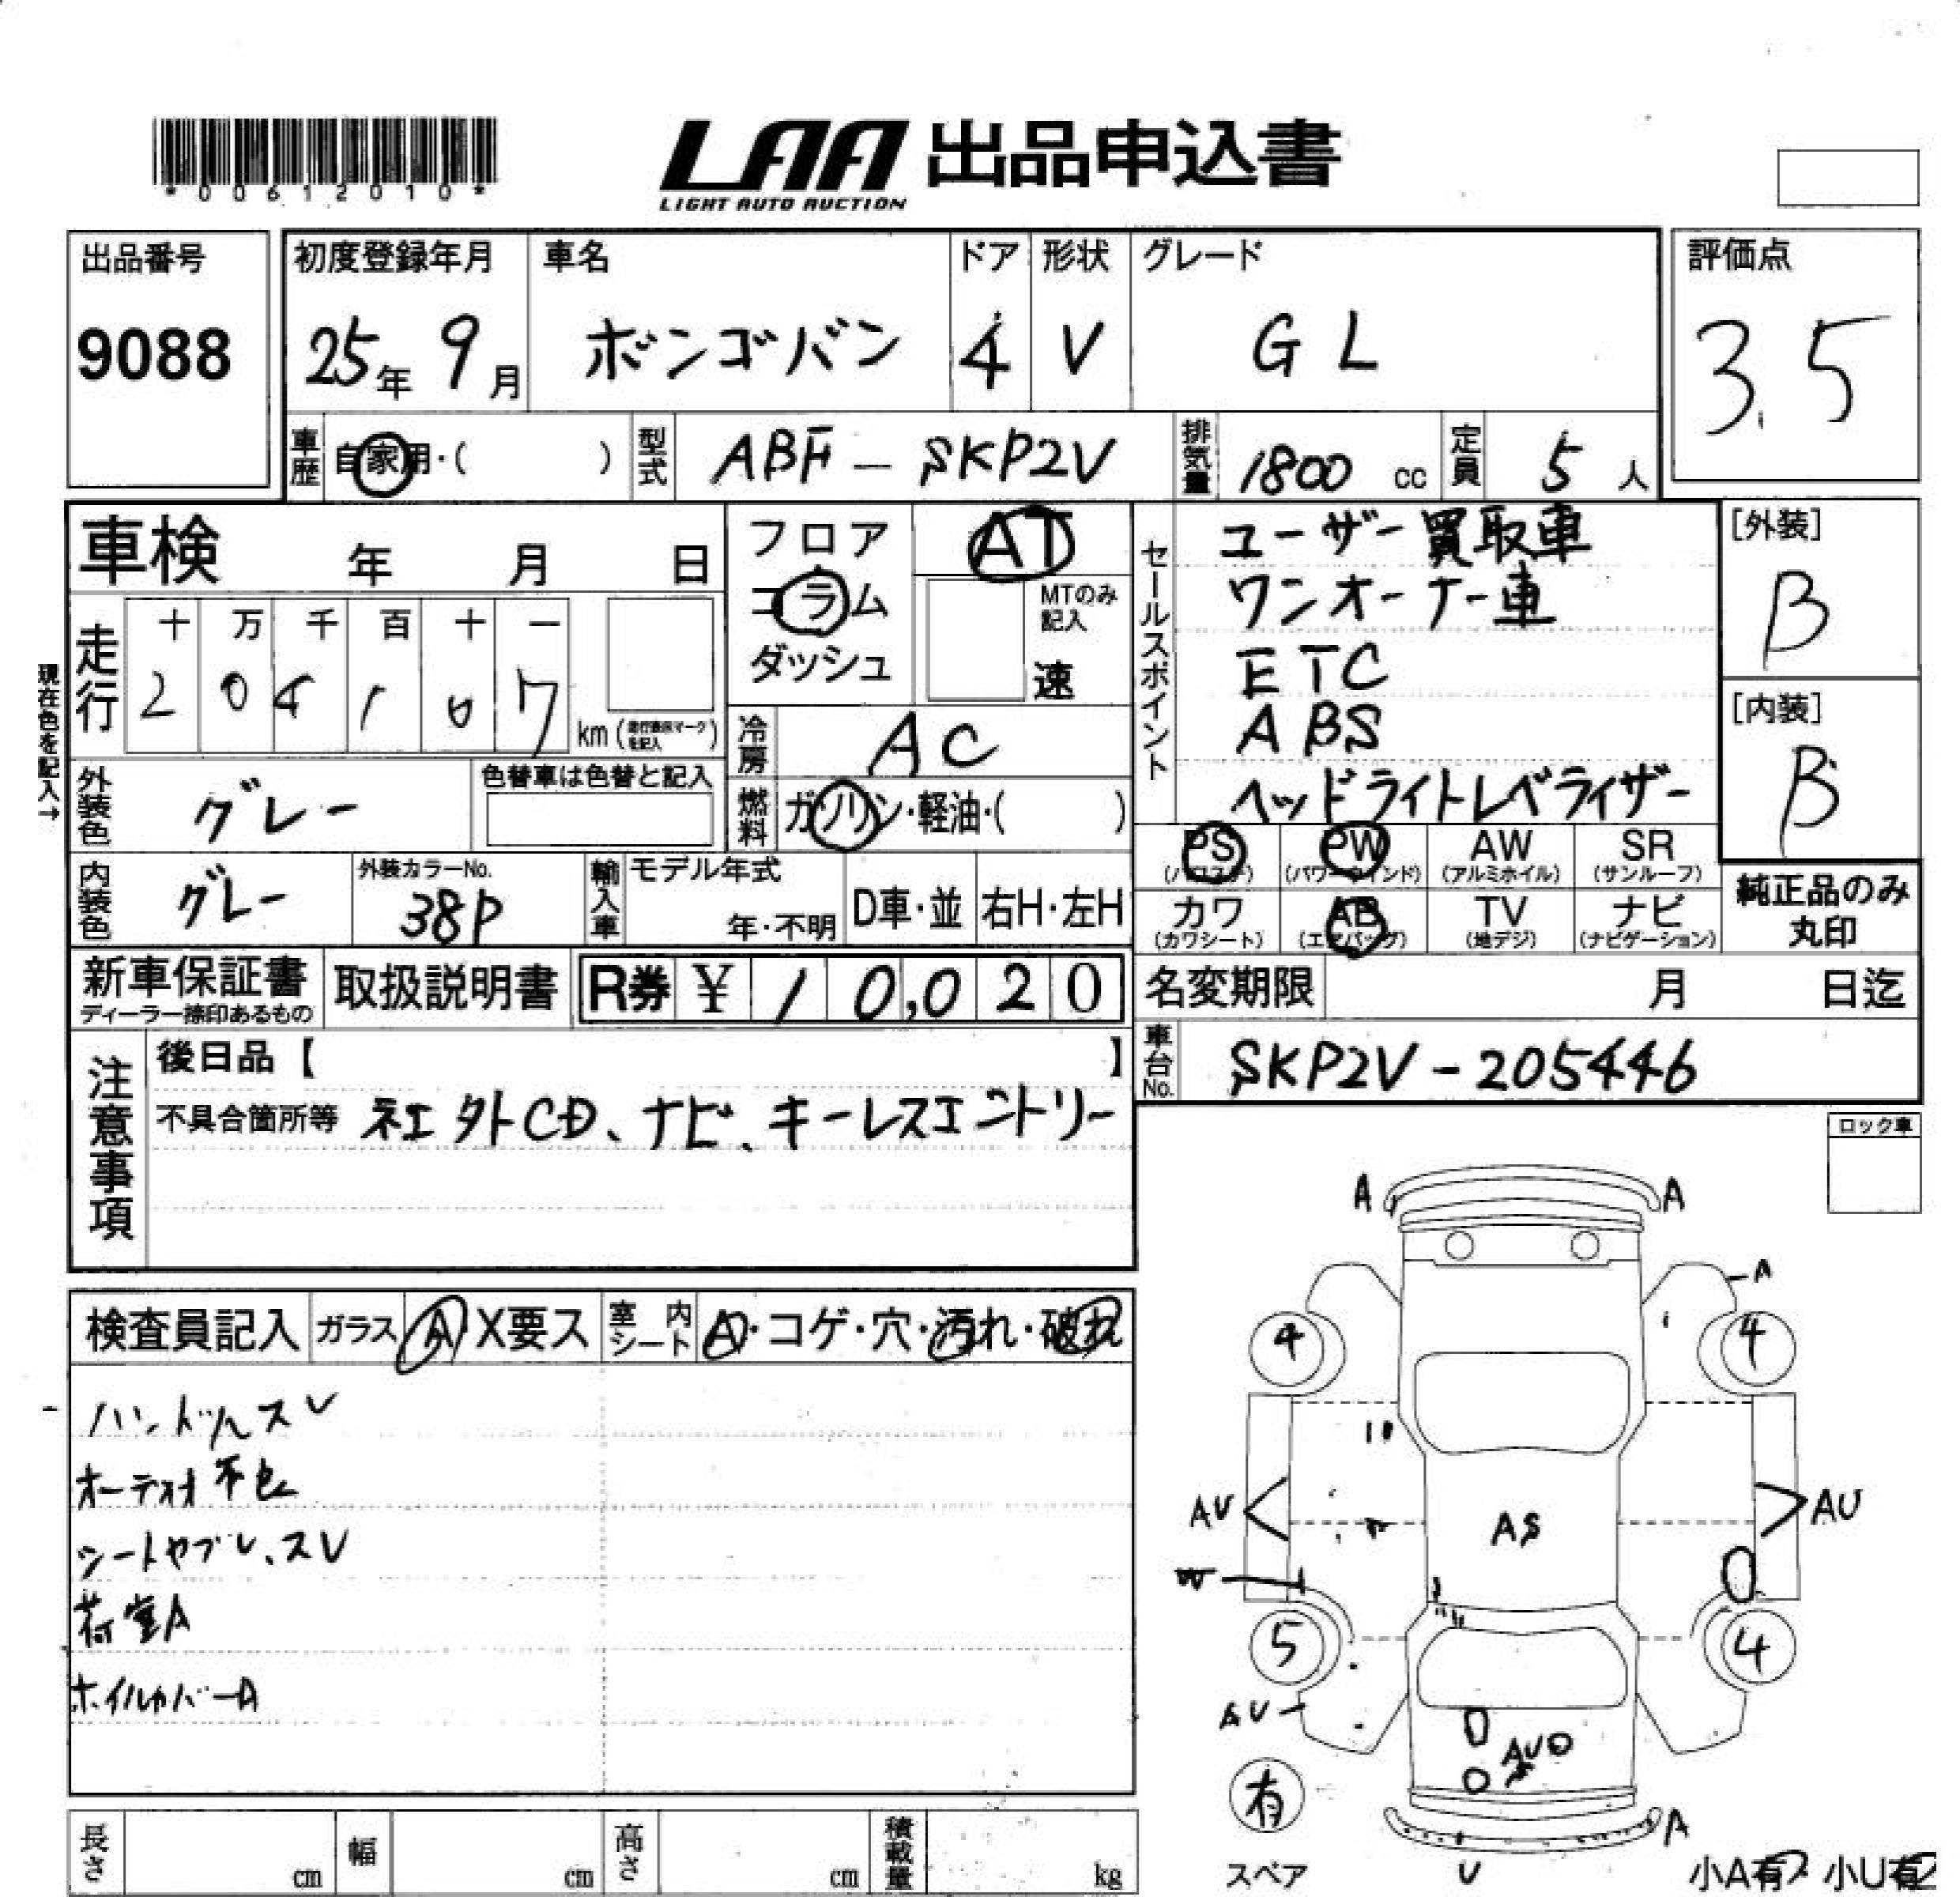 *00612010*
LAA 出品申込書
LIGHT AUTO AUCTION
出品番号
9088
初度登録年月
25年 9月
車名
ボンゴバン
ドア
4
形状
V
グレード
GL
評価点
3.5
車歴 自家用・( )
型式 ABF-SKP2V
排気量 1800 cc
定員 5 人
車検 年 月 日
フロア
コラム
ダッシュ
AT
MTのみ記入
速
現在色を記入→
走行
十 万 千 百 十 一
2 0 4 1 0 7
km
冷房 AC
外装色 グレー
色替車は色替と記入
燃料 ガソリン・軽油・( )
内装色 グレー
外装カラーNo.
38P
輸入車
モデル年式
年・不明
D車・並
右H・左H
セールスポイント
ユーザー買取車
ワンオーナー車
ETC
ABS
ヘッドライトレベライザー
[外装]
B
[内装]
B
PS PW AW SR
(パワステ) (パワーウインド) (アルミホイル) (サンルーフ)
カワ AB TV ナビ
(カワシート) (エアバッグ) (地デジ) (ナビゲーション)
純正品のみ
丸印
新車保証書
ディーラー捺印あるもの
取扱説明書
R券 ¥ 10,020
名変期限 月 日迄
車台No. SKP2V-205446
注意事項
後日品【 】
不具合箇所等 社外CD、ナビ、キーレスエントリー
ロック車
検査員記入
ガラス A X要ス
室内シート A・コゲ・穴・汚れ・破れ
ハンドルスレ
オーディオ不良
シートヤブレ、スレ
荷室A
ホイルカバーA
A A
A
4 4
AU AU
AS
W
5 4
AU
AU
有
スペア
A
U
小A有 小U有
長さ cm
幅 cm
高さ cm
積載量 kg